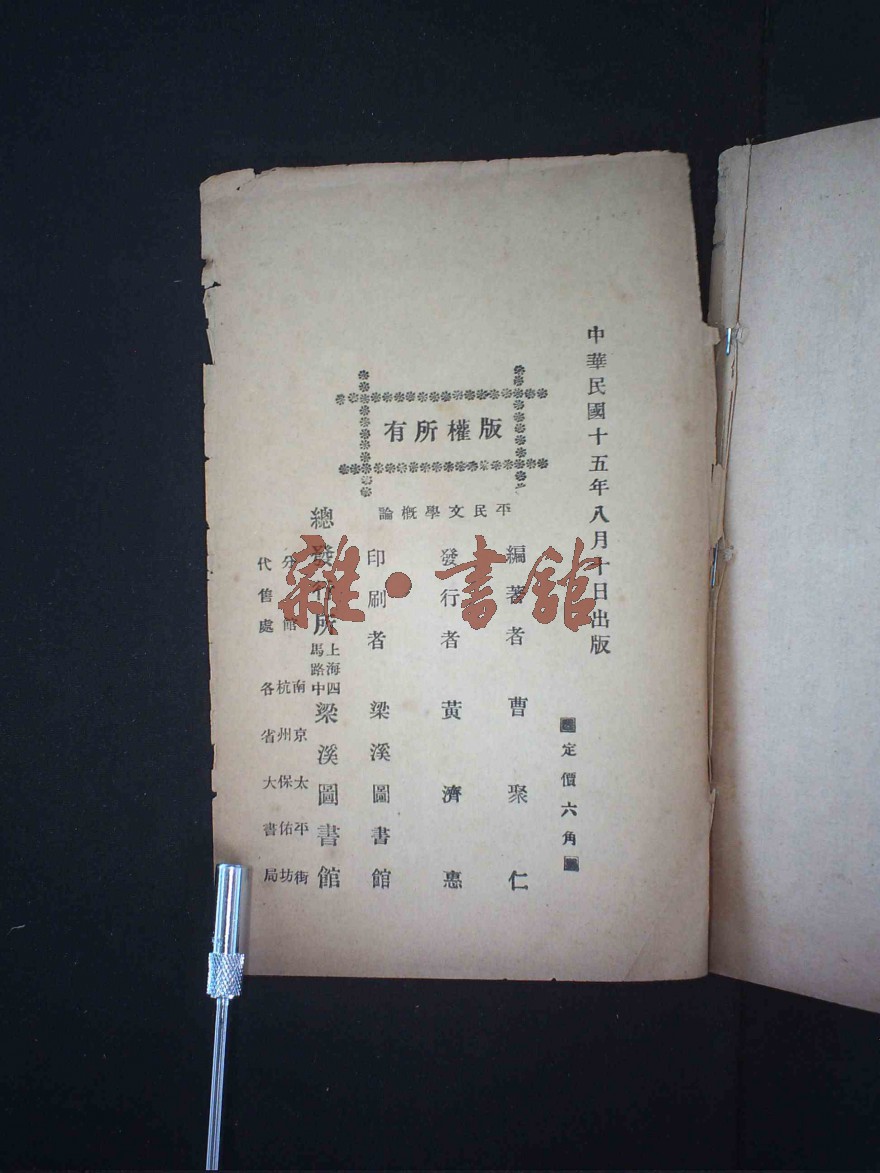 中華民國十五年八月十日出版
定價六角
版權所有
平民文學概論
編著者 曹聚仁
發行者 黃濟惠
印刷者 梁溪圖書館
總發行所 上海四馬路中 梁溪圖書館
分館 南京太平街
杭州保佑坊
代售處 各省大書局
雜·書館